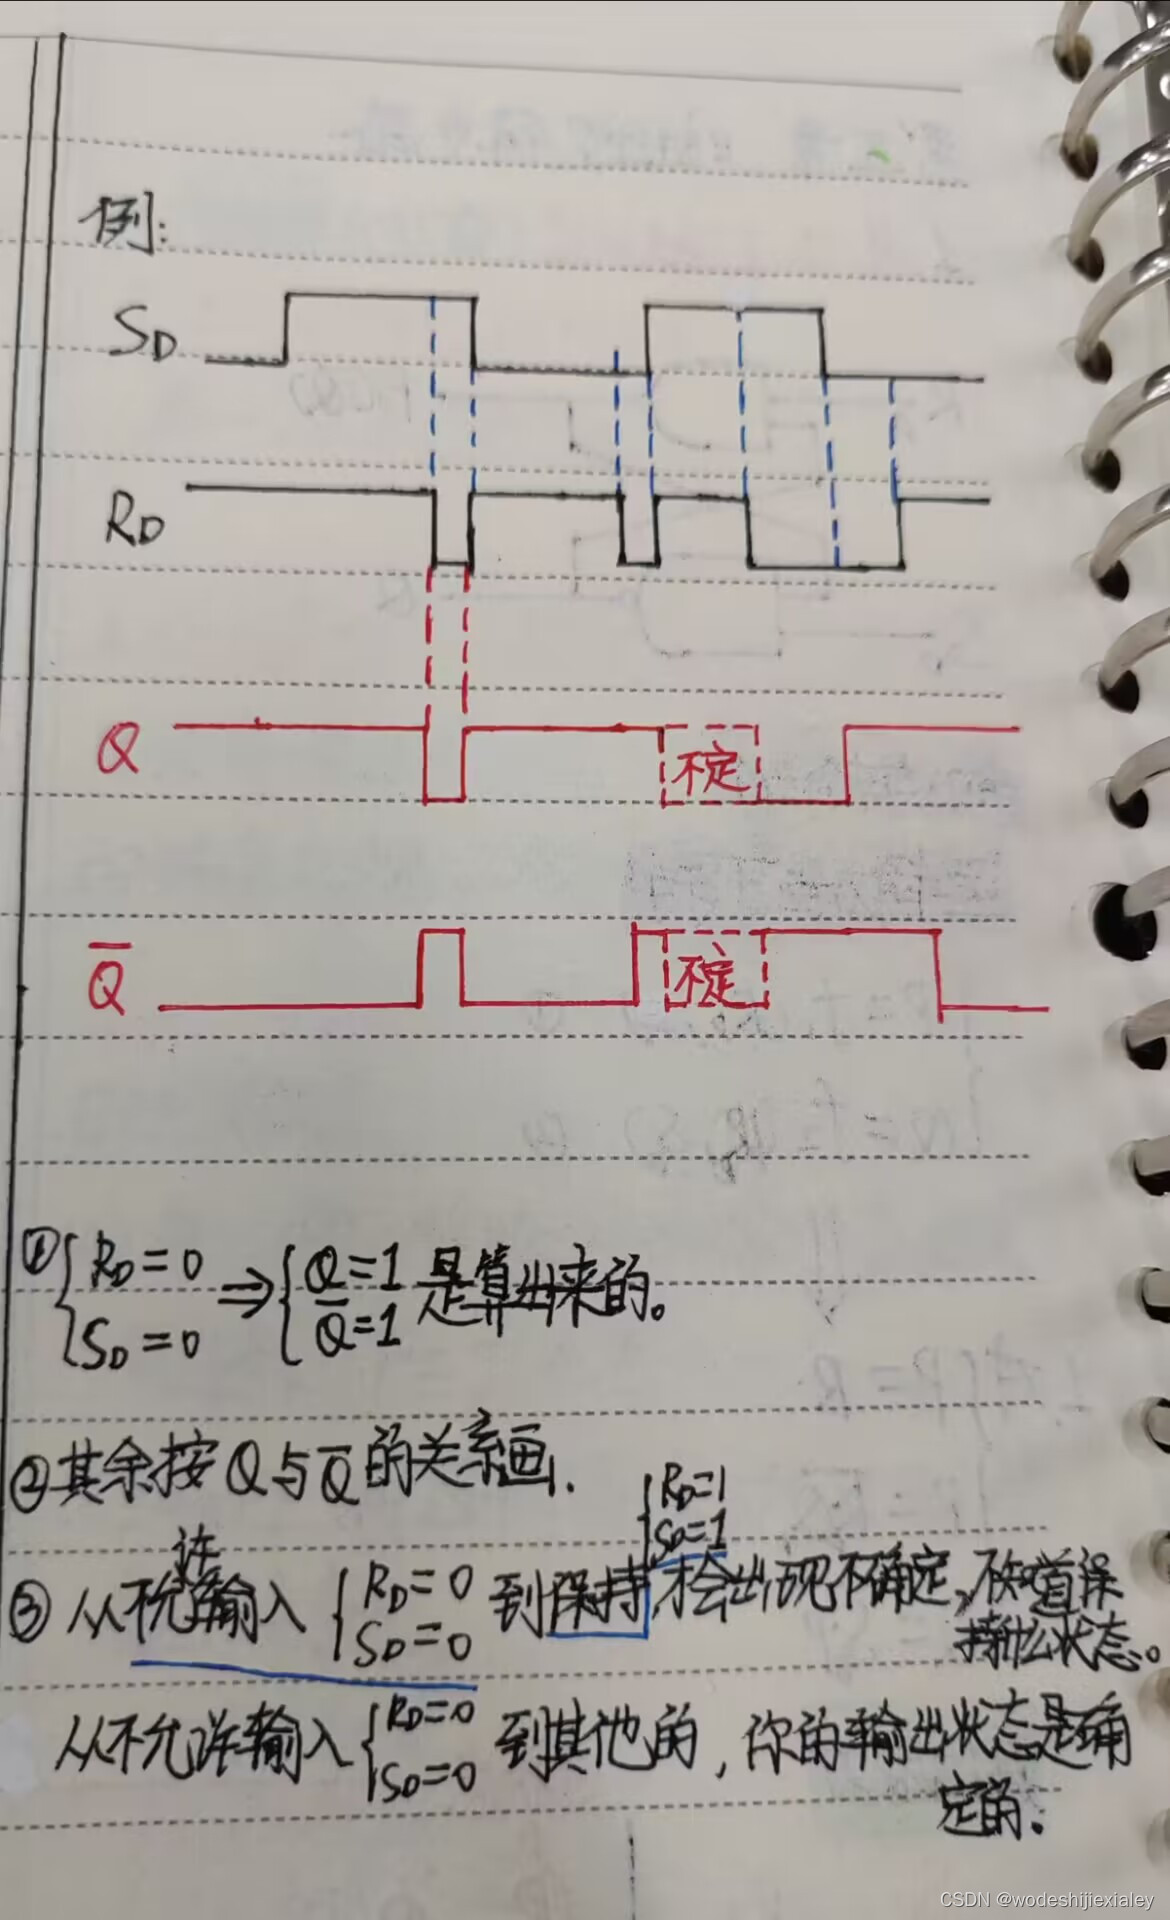 例:
SD
RD
Q
不定
Q̅
不定
① { RD=0 SD=0 ⇒ { Q=1 Q̅=1 是算出来的。
②其余按Q与Q̅的关系画.
{ RD=1 SD=1
③从不允许输入 { RD=0 SD=0 到保持,才会出现不确定,不知道保
持什么状态。
从不允许输入 { RD=0 SD=0 到其他的,你的输出状态是确
定的.
CSDN @wodeshijiexialey